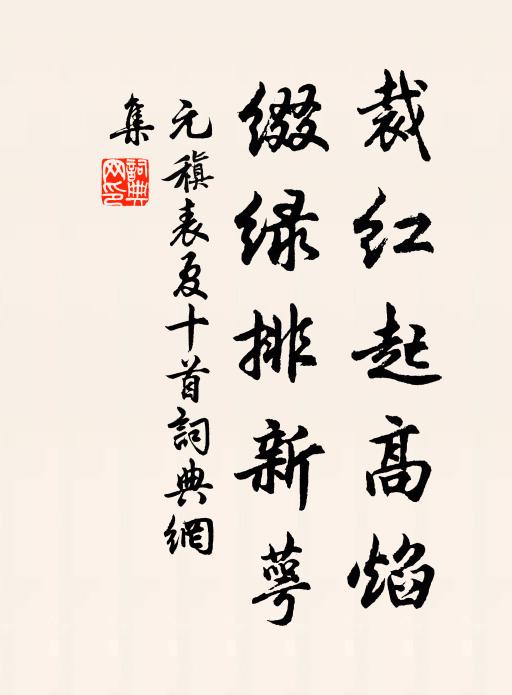 裁红起高焰
缀绿排新萼
元稹表夏十首詞典網
集
詞典網印